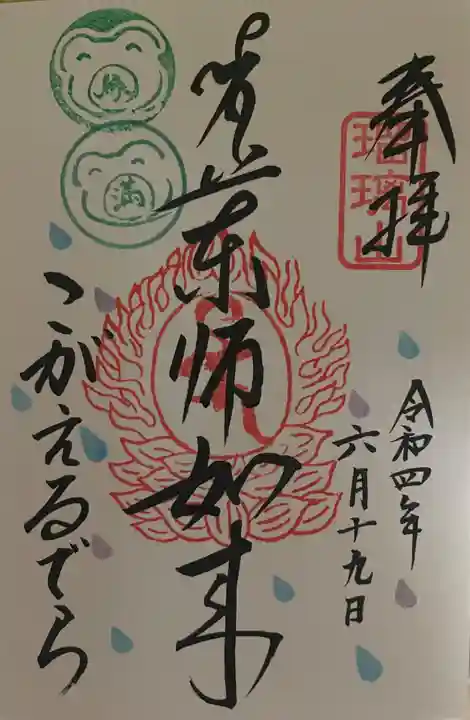 奉拝
瑠璃山
令和四年
六月十九日
薬師如来
満
こがえるでら